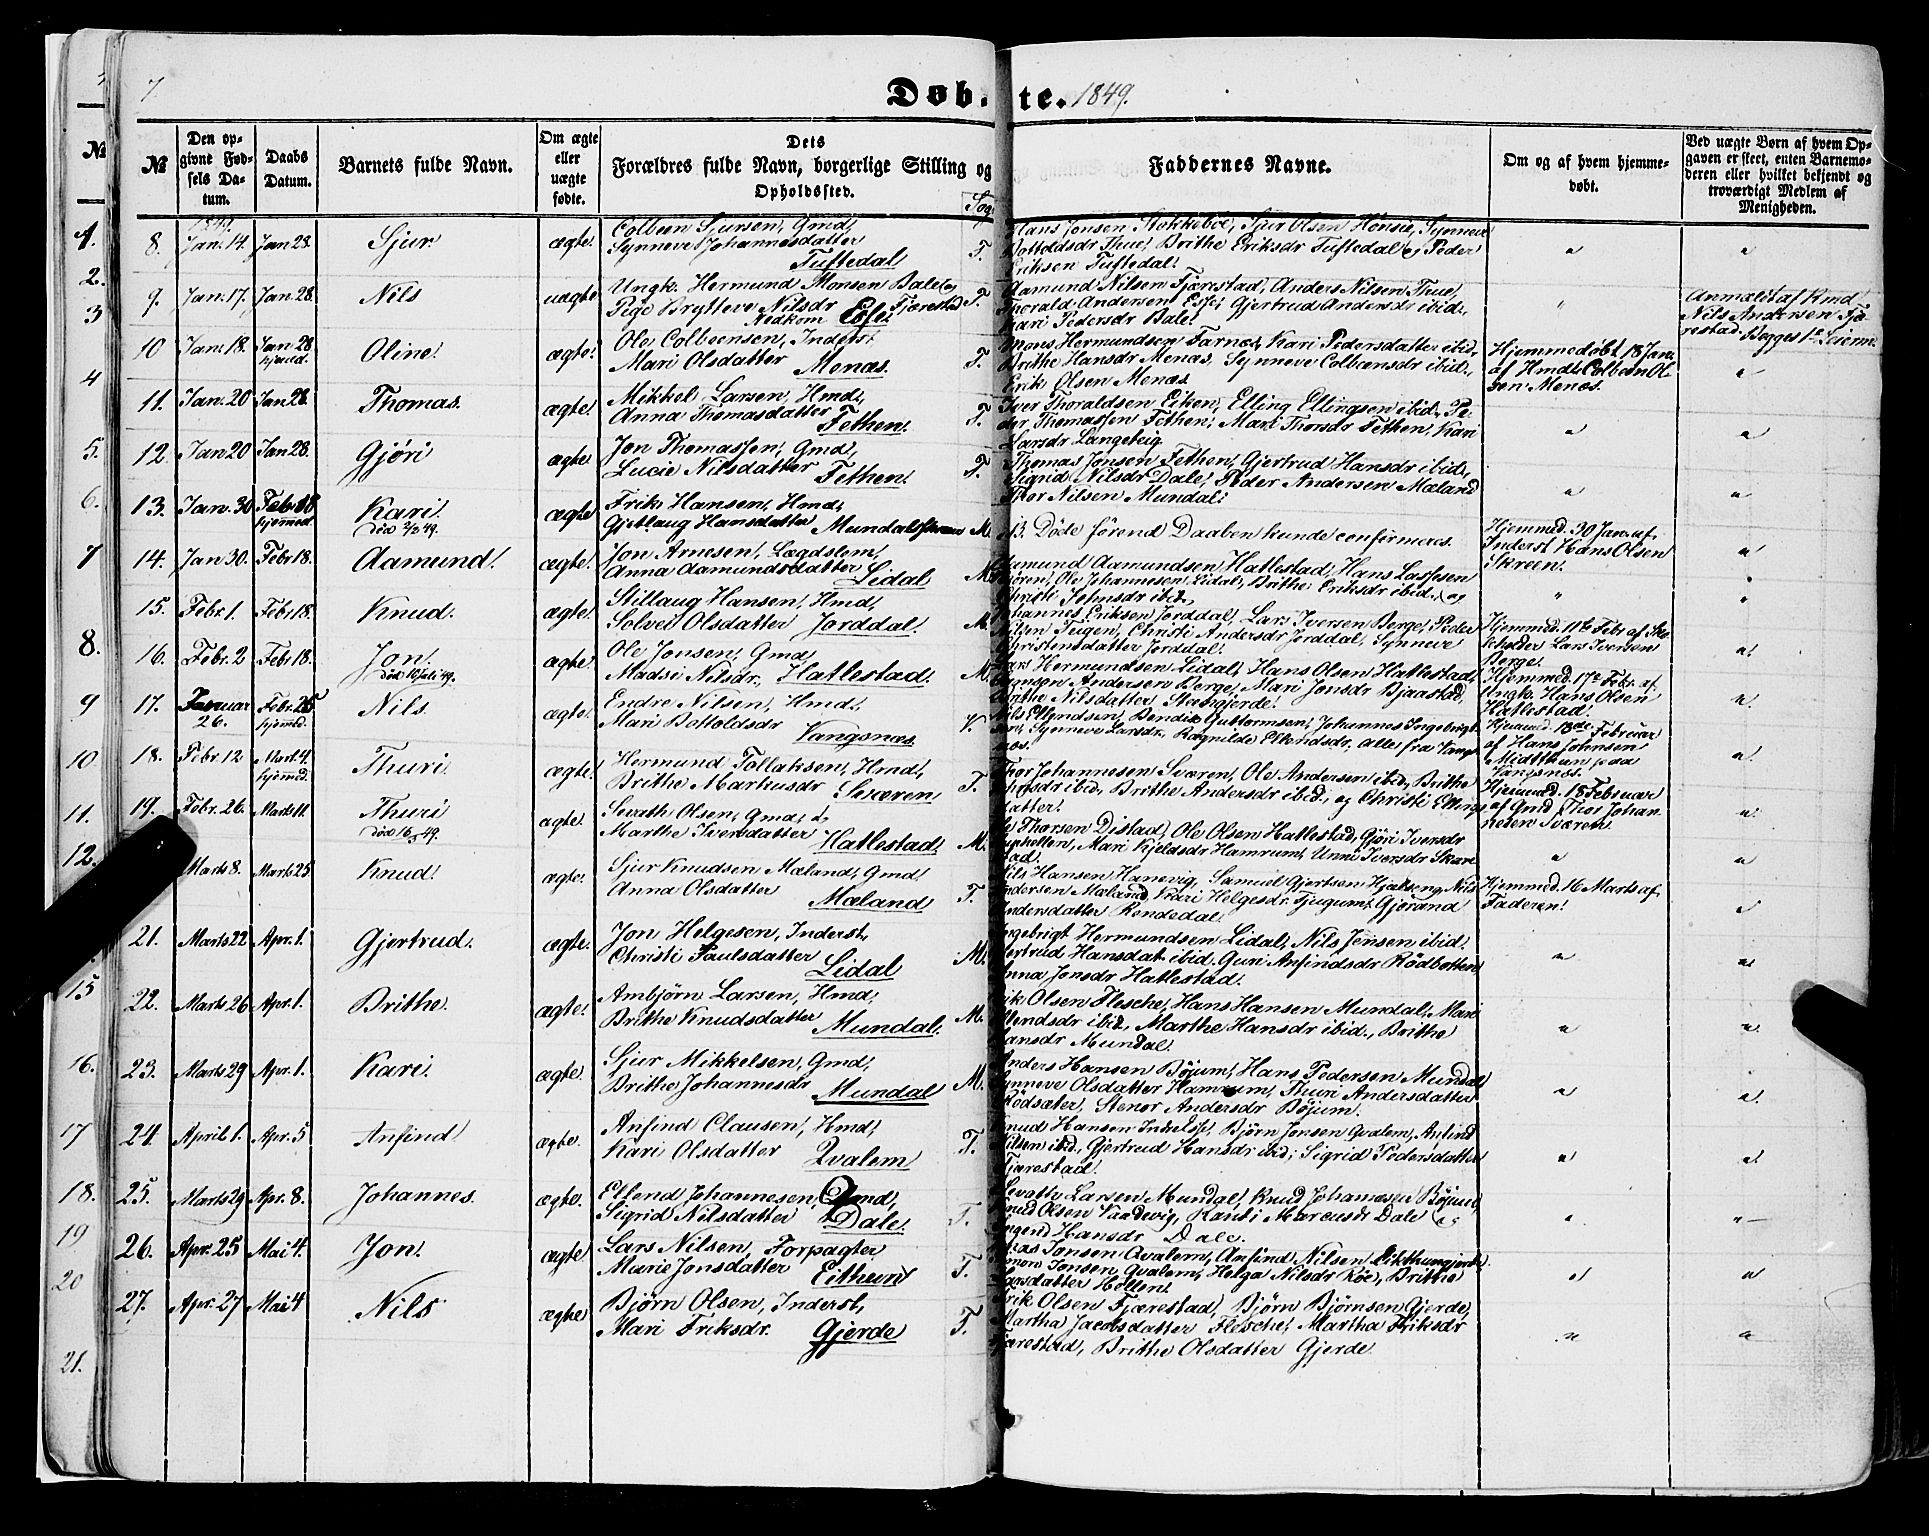 7
Døbte. 1849.
№
Den opgivne Fødsels Datum.
Daabs Datum.
Barnets fulde Navn.
Om ægte eller uægte fødte.
Dets Forældres fulde Navn, borgerlige Stilling og Opholdssted.
Sog
Faddernes Navne.
Om og af hvem hjemmedøbt.
Ved uægte Børn af hvem Opgaven er skeet, enten Barnemoderen eller hvilket bekjendt og troværdigt Medlem af Menigheden.
1849.
8. Jan. 14. Jan 28. Sjur ægte. Colbeen Sjursen, Gmd,
Synneve Johannesdatter
Tuftedal T.
Hans Jonsen Stokkeboe, Sjur Olsen Hønsie, Synneve
Botolddr Thue, Brithe Eriksdr Tuftedal og Peder
Eriksen Tuftedal.
9. Jan. 17. Jan. 28. Nils uægte Ungk. Hermund Monsen Bale og
Pige Brytteve Nilsdr Fjærestad
Nedkom Esse. T.
Aamund Nilsen Fjærestad, Anders Nilsen Thue,
Thorald Andersen Esse, Gjertrud Andersdr ibid.,
Kari Pedersdr Bale.
Anmeldt af Kmd
Nils Andersen Fjærestad. Begges 1ste Leierm.
10 Jan. 18. Jan. 28 hjemd. Oline. ægte. Ole Colbeensen, Inderst,
Mari Olsdatter Menæs. T.
Mons Hermundsen Farnæs, Kari Pedersdatter ibid,
Brithe Hansdr Menæs, Synneve Colbeensdr ibid.,
Erik Olsen Menæs.
Hjemmedøbt 18 Jan.
af Hmd Colbeen Olsen Menæs.
11. Jan. 20 Jan 28. Thomas. ægte. Mikkel Larsen, Hmd,
Anna Thomasdatter
Fethen. T.
Iver Thoraldsen Eiken, Elling Ellingsen ibid., Peder Thomassen Fethen, Mari Thorsdr Fethen, Kari
Larsdr Langeteig.
12. Jan 20 Jan 28. Gjøri ægte. Jon Thomassen, Gmd,
Lucie Nilsdatter
Fethen. T.
Thomas Jonsen Fethen, Gjertrud Hansdr ibid.,
Sigrid Nilsdr Dale, Peder Andersen Mæland
Thor Nilsen Mundal.
13. Jan. 30 Febr. 18 hjemmed. Kari.
død 2/2 49. ægte Erik Hansen, Hmd,
Gjetlaug Hansdatter M.
NB. Døde førend Daaben kunde confirmeres.
Hjemmed. 30 Jan. af
Inderst Hans Olsen
Skreen.
14. Jan 30. Febr 18. Aamund. ægte. Jon Arnesen, Lægdslem,
Anna Aamundsdatter
Lidal M.
Aamund Aamundsen Hatlestad, Hans Lassesen
Ole Johannesen Lidal, Brithe Eriksdr ibid., og
15. Febr. 1. Febr 18. Knud. ægte. Stillaug Hansen, Hmd,
Solvei Olsdatter Jorddal. M.
Johannes Eriksen Jorddal, Lars Iversen Berge, Peder
Teigen, Christi Andersdr Jorddal, Synneve
Christensdatter Jorddal.
Hjemmed. 11te Febr af Skoleholder Lars Iversen
Berge.
16. Febr. 2 Febr 18. Jon.
død 16 Juli 49. ægte. Ole Jonsen, Gmd,
Madsi Nilsdr., Hatlestad. M.
Lars Hermundsen Lidal, Hans Olsen Hatlestad,
Andersen Berge, Mari Jonsdr Bjaastad,
Brithe Nilsdatter
Hjemmed. 17de Febr. af
Ungk. Hans Olsen
Hatlestad.
17. Januar 26. Febr. 25 hjemmed. Nils ægte. Endre Nilsen, Hmd,
Mari Botoldsdr
Vangsnæs. V.
Nils Bendix Guttormsen, Johannes Ingebrigtsen, Synneve Larsdr, Ragnilde alle fra Vangsnæs.
Hjemmed. 18de Februar
af Hans Johnsen
Midtthun paa
Vangsnæs.
18. Febr 12 Mart. 4. hjemmed. Thuri ægte. Hermund Tollaksen, Hmd,
Brithe Marhusdr Sværen T.
Thor Johannesen Sværen, Ole Andersen ibid, Brithe
ibid, Brithe Andersdr ibid., og Christi
datter.
Hjemmed. 15 Februar
af Gmd Thor Johannesen Sværen.
19. Febr. 26. Marts 11. Thuri
død 16/3 49. ægte. Sevath Olsen, Gmd,
Marthe Iversdatter
Hatlestad. M.
Thorsen Distad, Ole Olsen Hatlestad, Gjøri Iversdr
Suphellen, Mari Kjeldsdr Hamrum, Unni Iversdr Skarestad.
Marts 8. Marts 25 Knud. ægte. Sjur Knudsen Mæland, Gmd.
Anna Olsdatter
Mæland T.
Nils Hansen Hanevig, Samuel Gjertsen Hjalseng, Nils
Andersen Mæland, Kari Helgesdr Tjugum, Gjørand
Andersdatter Rendedal.
Hjemmed. 16 Marts af
Faderen.
21. Marts 22 Apr. 1. Gjertrud. ægte. Jon Helgesen, Inderst,
Christi Paulsdatter
Lidal M.
Ingebrigt Hermundsen Lidal, Nils Jensen ibid.
Gjertrud Hansdat. ibid. Guri Anfindsdr Rødbotten
Anna Jonsdr Hatlestad.
22. Marts 26 Apr. 1. Brithe. ægte. Ambjørn Larsen, Hmd,
Brithe Knudsdatter
Mundal. M.
Erik Olsen Flesche, Hans Hansen Mundal, Mari
ibid., Marthe Hansdr ibid., Brithe
Hansdr Mundal.
23. Marts 29 Apr. 1. Kari. ægte. Sjur Mikkelsen, Gmd,
Brithe Johannesdr
Mundal M.
Anders Hansen Bøjum, Hans Pedersen Mundal
Synneve Olsdatter Hamrum, Thuri Andersdatter
Rødsæter, Stenor Andersdr Bøjum.
24. April 1. Apr. 5 Anfind ægte. Anfind Clausen, Hmd,
Kari Olsdatter Qvalem T.
Knud Hansen Indrelse, Bjørn Jonsen Qvalem, Anfind
Nilsen ibid, Gjertrud Hansdr ibid; Sigrid Pedersdatter
Fjærestad.
25. Marts 29 Apr. 8. Johannes. ægte. Ellend Johannesen, Gmd,
Sigrid Nilsdatter Dale. T.
Sevatt Larsen Mundal, Knud Johannesen Bøjum,
Knud Olsen Vaadevig, Randi Marcusdr Dale og
Ingerd Hansdr Dale.
26. Apr. 25 Mai 4. Jon. ægte. Lars Nilsen, Forpagter
Marie Jonsdatter
Eithun T.
Jonsen Qvalem, Anfind Nilsen
Jonsen Qvalem, Helga Nilsdr Køe, Brithe
Larsdatter Hellen.
27. Apr. 27 Mai 4 Nils ægte Bjørn Olsen, Inderst,
Mari Eriksdr. Gjerde T.
Erik Olsen Fjærestad, Bjørn Bjørnsen Gjerde,
Martha Jacobsdatter Flesche, Martha Eriksdr
Fjærestad, Brithe Olsdatter Gjerde.